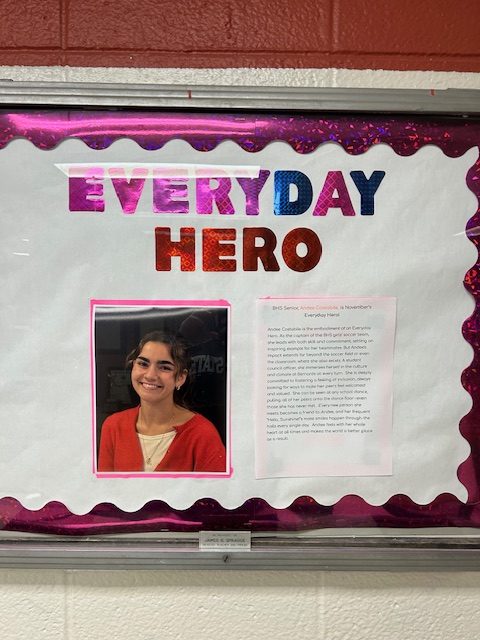 EVERYDAY
HERO
BHS Senior, Andee Costabile, is November's
Everyday Hero!
Andee Costabile is the embodiment of an Everyday
Hero. As the captain of the BHS girls' soccer team,
she leads with both skill and commitment, setting an
inspiring example for her teammates. But Andee's
impact extends far beyond the soccer field or even
the classroom, where she also excels. A student
council officer, she immerses herself in the culture
and climate at Bernards at every turn. She is deeply
committed to fostering a feeling of inclusion, always
looking for ways to make her peers feel welcomed
and valued. She can be seen at any school dance,
pulling all of her peers onto the dance floor-even
those she has never met. Every new person she
meets becomes a friend to Andee, and her frequent
"Hello, Sunshine!"s make smiles happen through the
halls every single day. Andee feels with her whole
heart at all times and makes the world a better place
as a result.
STATE
JAMES B. SPRAGUE